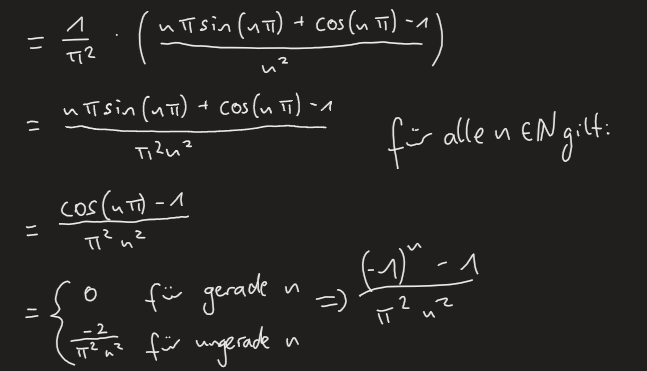 = 1/π² · ( (nπ sin(nπ) + cos(nπ) - 1) / n² )
= (nπ sin(nπ) + cos(nπ) - 1) / (π²n²) für alle n ∈ ℕ gilt:
= (cos(nπ) - 1) / (π² n²)
= { 0 für gerade n => ((-1)ⁿ - 1) / (π² n²)
-2 / (π² n²) für ungerade n